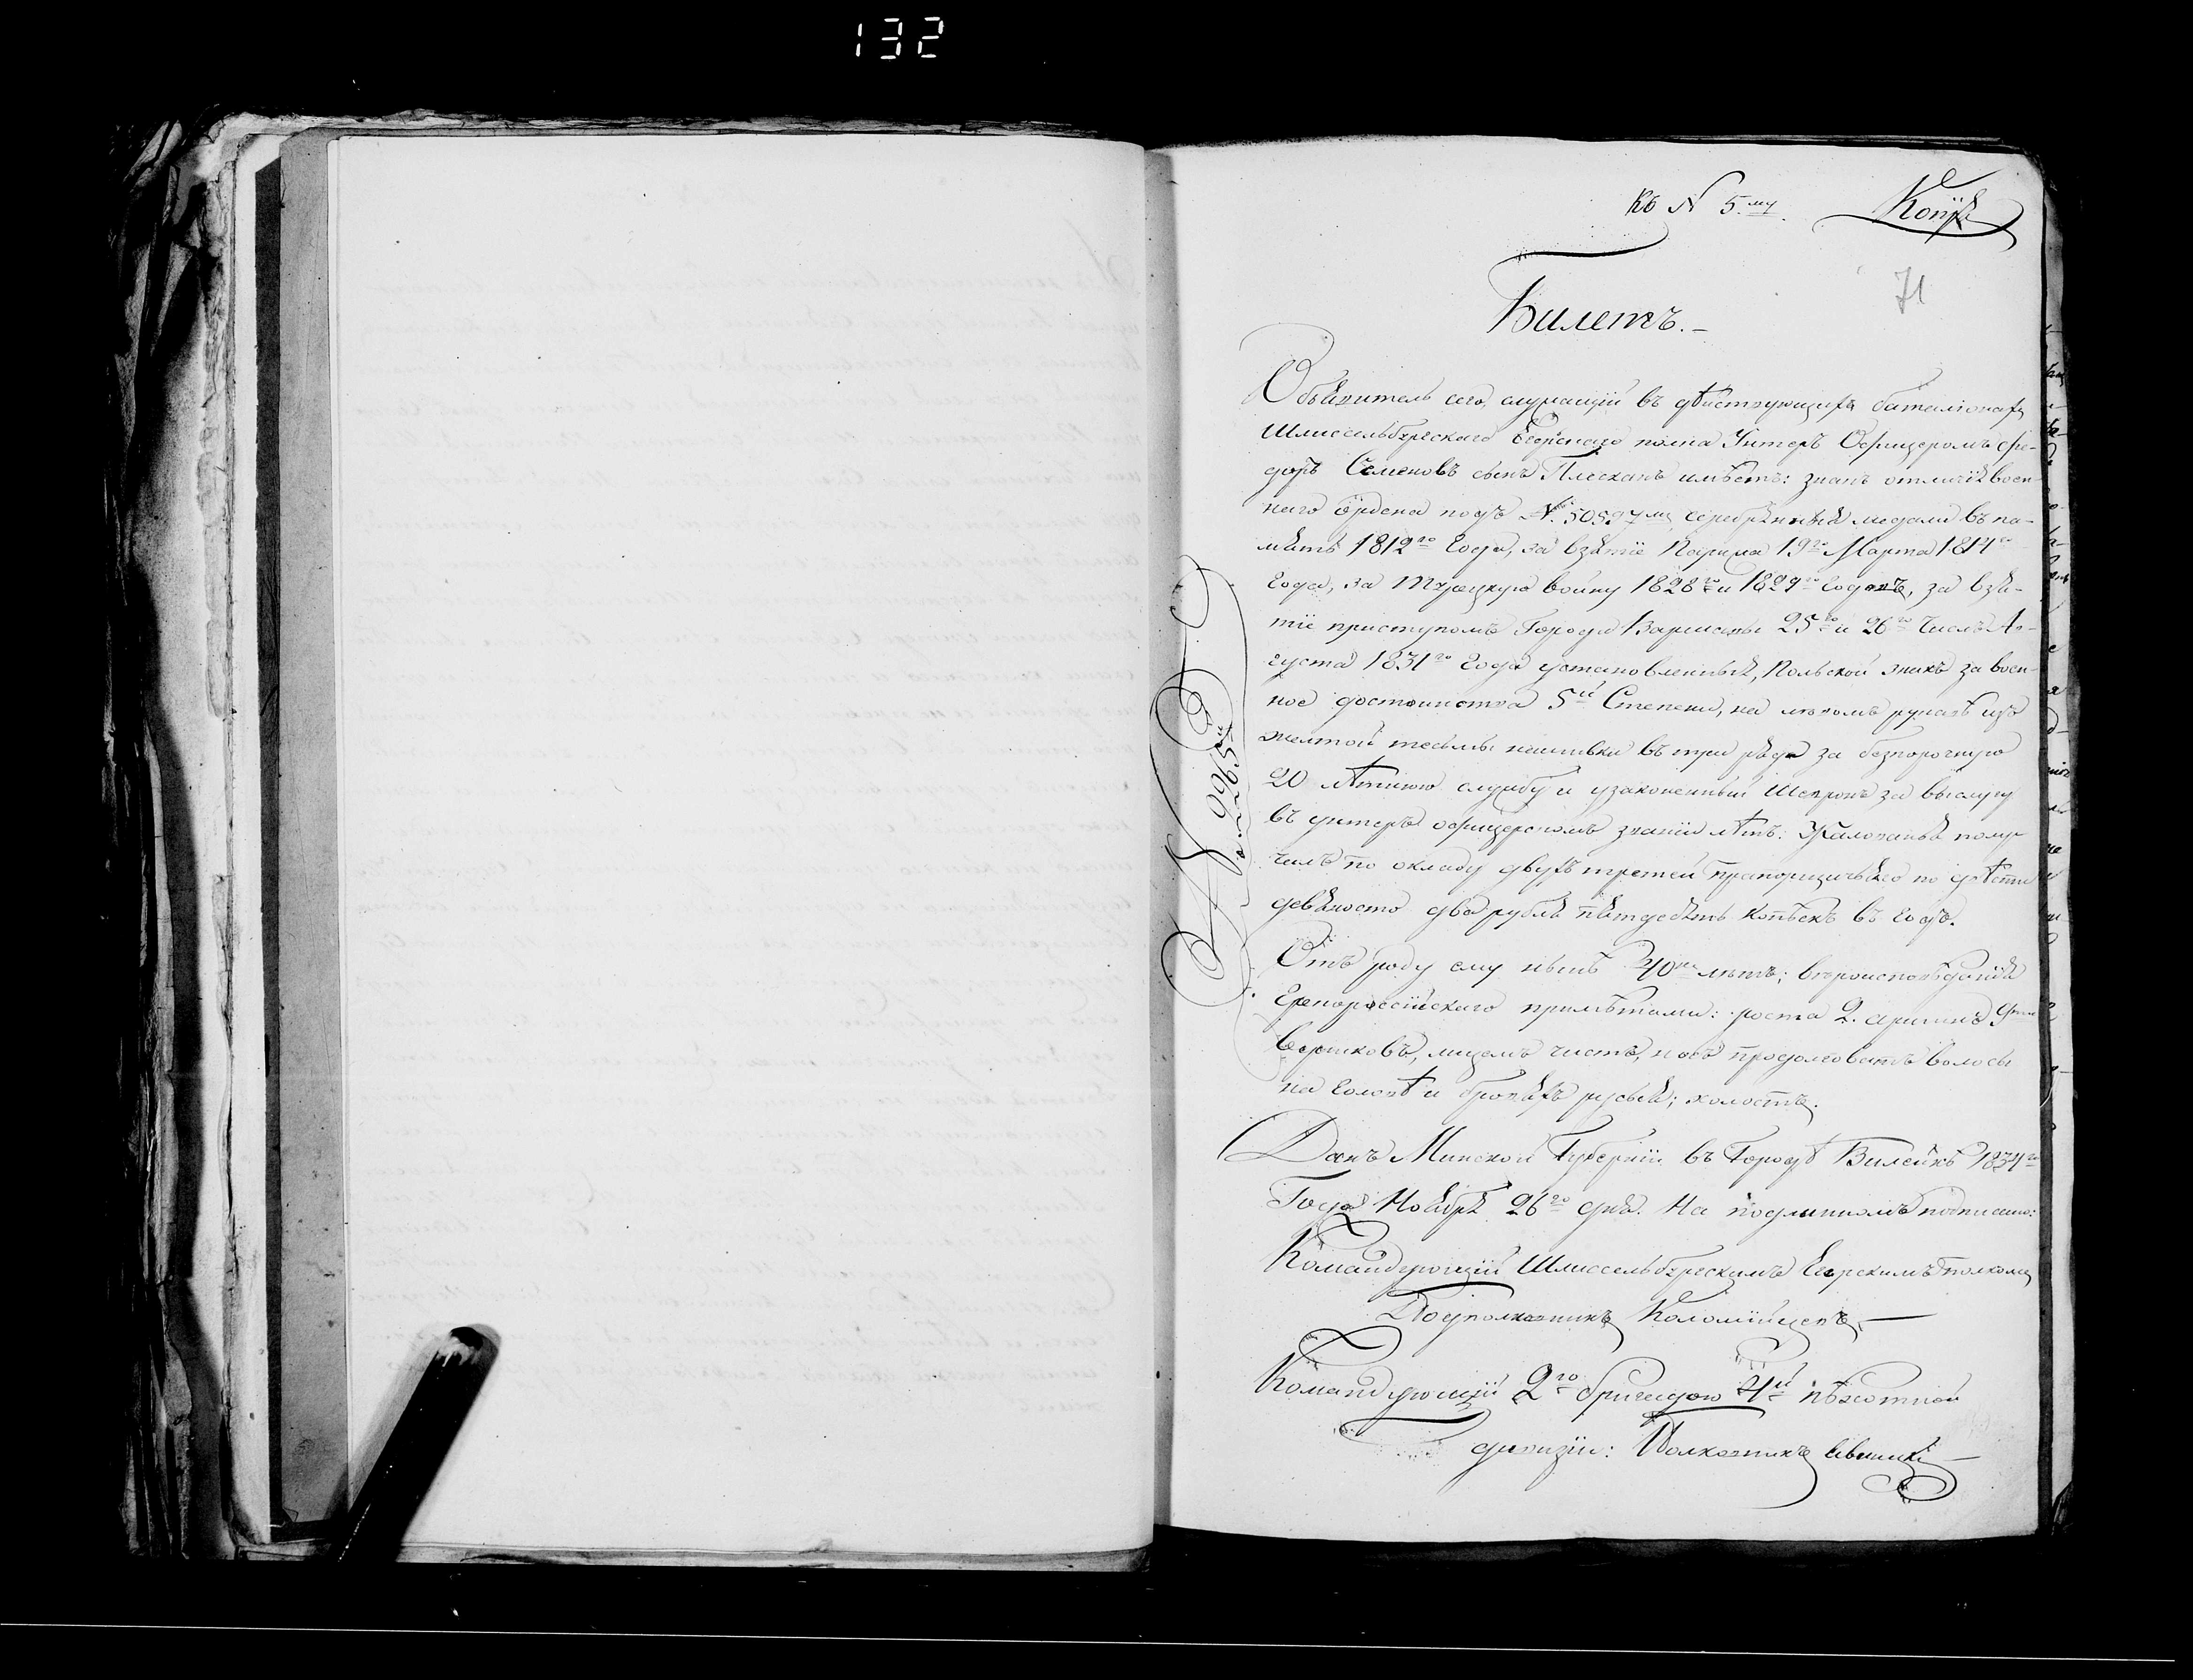 132
Къ N 5му.
Копія
71
Билетъ.
Объявитель сего, служащій въ дѣйствующихъ баталіонахъ
Шлиссельбургскаго Егерскаго полка Унтеръ Офицеромъ Фе-
доръ Семеновъ сынъ Плескачъ имѣетъ: знакъ отличія воен-
наго Ордена подъ № 50597мъ серебрянныя медали въ па-
мять 1812го Года, за взятіе Парижа 19го Марта 1814го
Года, за Турецкую войну 1828го и 1829го Годовъ, за взя-
тіе приступомъ Города Варшавы 25го и 26го Числъ Ав-
густа 1831го Года установленныя, Польской знакъ за воен-
ное достоинство 5й Степени, на лѣвомъ рукавѣ изъ
желтой тесьмы нашивки въ три ряда за безпорочную
20 лѣтнюю службу и узаконенный Шевронъ за выслугу
въ унтеръ офицерскомъ званіи лѣтъ: Жалованья полу-
чалъ по окладу двухъ третей прапорщичьяго по двѣсти
девяносто два рубля пятдесятъ копѣекъ въ Годъ.
Отъ роду ему нынѣ 40 лѣтъ; вѣроисповѣданія
Грекороссійскаго примѣтами: роста 2. аршинъ 9ти
Вершковъ, лицемъ чистъ, носъ продолговатъ волосы
на Головѣ и бровяхъ русыя; холостъ.
Данъ Минской Губерніи въ Городѣ Вилейкѣ 1834го
Года Ноября 26го дня. На подлинномъ подписано:
Командующій Шлиссельбургскимъ Егерскимъ полкомъ
Подполковникъ Коломійцевъ
Командующій 2ю бригадою 4й пѣхотной
дивизіи: Полковникъ
№ 9965й